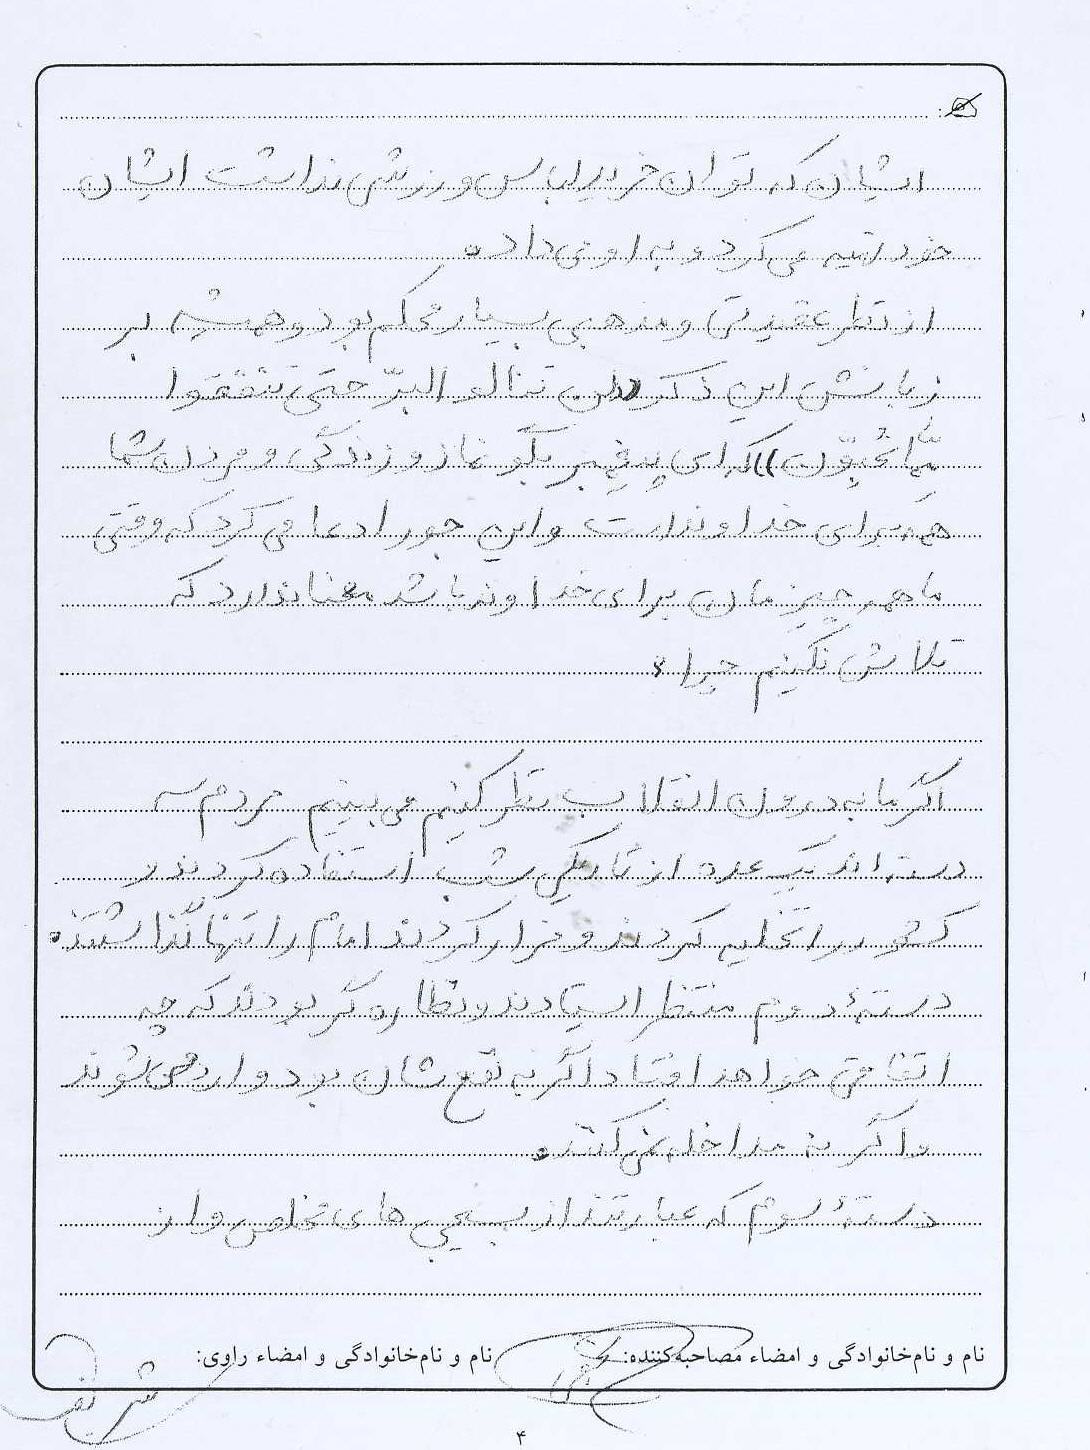 ایشان که توان خرید لباس ورزشی نداشت ایشان
خود تهیه می کرد و به او می داد.
از نظر عقیدتی و مذهبی بسیار محکم بود و همیشه بر
زبانش این ذکر ((لن تنالو البرّ حتی تنفقوا
ممّا تحبّون)) که ای پیغمبر بگو نماز و زندگی و مردن شما
همه برای خداوند است و این جور ادعا می کرد که وقتی
ما همه چیزمان برای خداوند باشد معنا ندارد که
تلاش نکنیم چرا؟
اگر ما به درون انقلاب نظر کنیم می بینیم مردم سه
دسته اند یک عده از تاریکی شب استفاده کردند و
کشور را تخلیه کردند و فرار کردند امام را تنها گذاشتند.
دستهٔ دوم منتظر ایستادند و نظاره گر بودند که چه
اتفاقی خواهد افتاد اگر به نفع شان بود وارد می شوند
و اگر نه مداخله نمی کنند.
دستهٔ سوم که عبارتند از بسیجی های مخلص و از
نام و نام‌خانوادگی و امضاء مصاحبه‌کننده:
نام و نام‌خانوادگی و امضاء راوی:
شریفی
۴